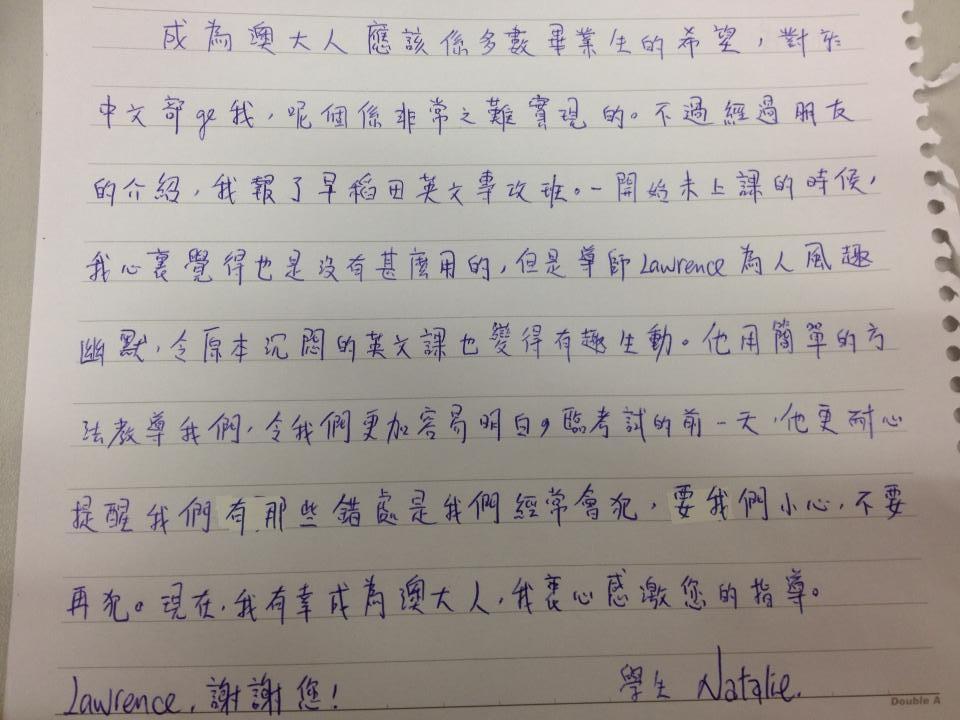 成為澳大人應該係多數畢業生的希望，對於
中文部ge我，呢個係非常之難實現的。不過經過朋友
的介紹，我報了早稻田英文專攻班。一開始未上課的時候，
我心裏覺得也是沒有甚麼用的，但是導師Lawrence為人風趣
幽默，令原本沉悶的英文課也變得有趣生動。他用簡單的方
法教導我們，令我們更加容易明白，臨考試的前一天，他更耐心
提醒我們有那些錯處是我們經常會犯，要我們小心，不要
再犯。現在，我有幸成為澳大人，我衷心感激您的指導。
Lawrence，謝謝您！
學生 Natalie.
Double A